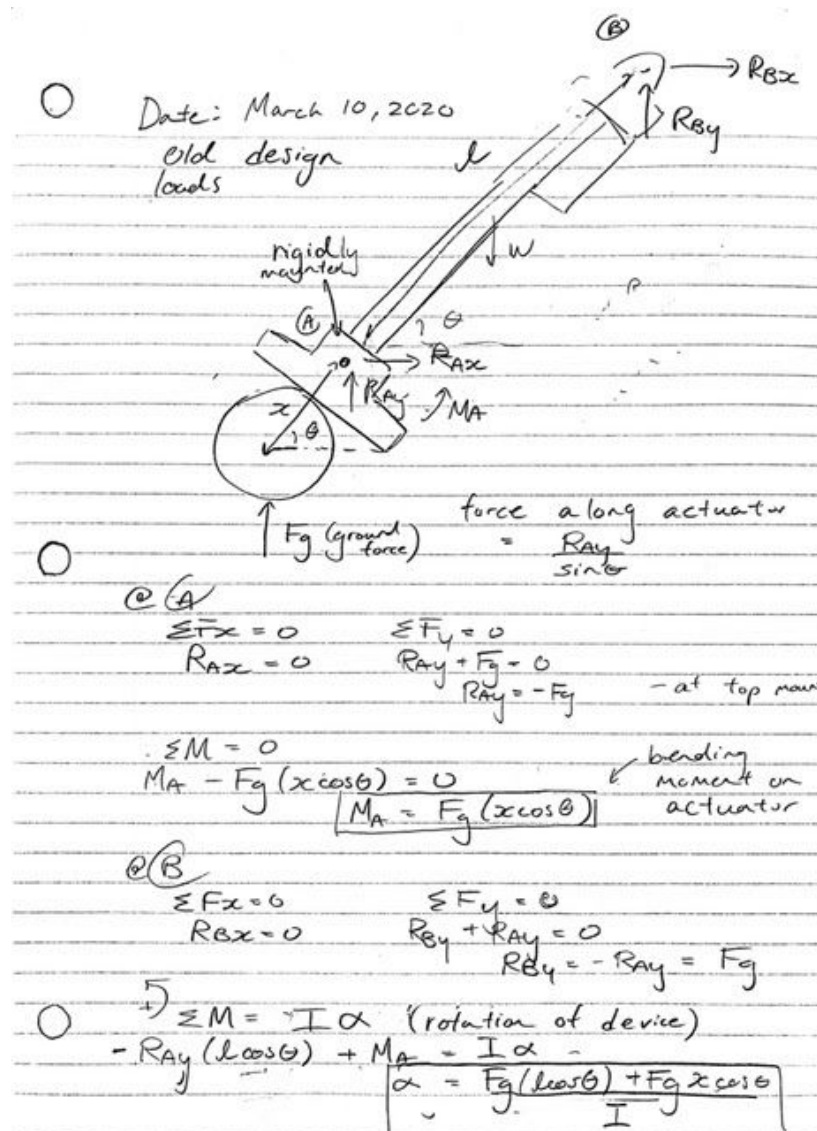 Ⓑ
R_Bx
Date: March 10, 2020
R_By
old design
l
loads
W
rigidly
mounted
Ⓐ
θ
R_Ax
x
R_Ay
M_A
θ
Fg (ground
force)
force along actuator
= R_Ay / sinθ
@ Ⓐ
ΣFx = 0 ΣFy = 0
R_Ax = 0 R_Ay + Fg = 0
R_Ay = -Fg
- at top
ΣM = 0
M_A - Fg (x cosθ) = 0
M_A = Fg (x cosθ)
bending
moment on
actuator
@ Ⓑ
ΣFx = 0 ΣFy = 0
R_Bx = 0 R_By + R_Ay = 0
R_By = - R_Ay = Fg
ΣM = I α (rotation of device)
- R_Ay (l cosθ) + M_A = I α
α = Fg (l cosθ) + Fg x cosθ / I